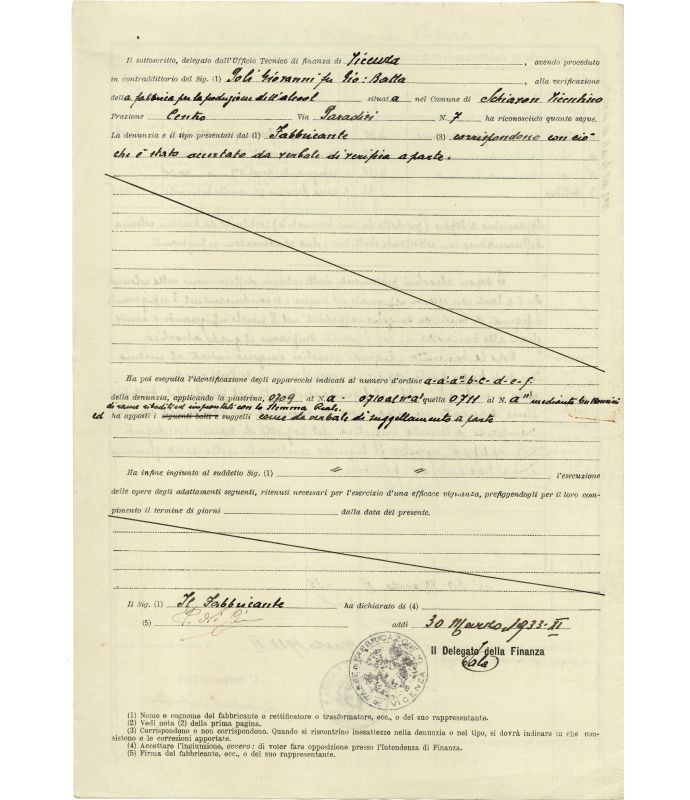 Il sottoscritto, delegato dall'Ufficio Tecnico di finanza di Vicenza, avendo proceduto
in contraddittorio del Sig. (1) Poli Giovanni fu Gio: Batta, alla verificazione
della fabbrica per la produzione dell'alcool situata nel Comune di Schiavon Vicentino
Frazione Centro Via Paradisi N. 7 ha riconosciuto quanto segue.
La denunzia e il tipo presentati dal (1) Fabbricante (3) corrispondono con ciò
che è stato accertato da verbale di verifica a parte.
Ha poi eseguita l'identificazione degli apparecchi indicati al numero d'ordine a-a'-a"-b-c-d-e-f.
della denunzia, applicando la piastrina, 0709 al N. a - 0710 al N° a' quella 0711 al N. a" mediante
di rame ribaditi ed improntati con lo Stemma Reale.
ed ha apposti i seguenti bolli e suggelli come da verbale di suggellamento a parte
Ha infine ingiunto al suddetto Sig. (1) " " l'esecuzione
delle opere degli adattamenti seguenti, ritenuti necessari per l'esercizio d'una efficace vigilanza, prefiggendogli per il loro com-
pimento il termine di giorni dalla data del presente.
Il Sig. (1) Il Fabbricante ha dichiarato di (4)
(5) addì 30 Marzo 1933-XI
Il Delegato della Finanza
VICENZA
(1) Nome e cognome del fabbricante o rettificatore o trasformatore, ecc., o del suo rappresentante.
(2) Vedi nota (2) della prima pagina.
(3) Corrispondono o non corrispondono. Quando si riscontrino inesattezze nella denunzia o nel tipo, si dovrà indicare in che con-
sistono e le correzioni apportate.
(4) Accettare l'ingiunzione, ovvero: di voler fare opposizione presso l'Intendenza di Finanza.
(5) Firma del fabbricante, ecc., o del suo rappresentante.